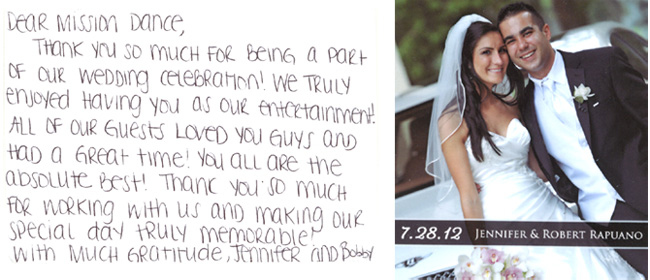 Dear Mission Dance,
Thank you so much for being a part
of our wedding celebration! We truly
enjoyed having you as our entertainment!
All of our guests loved you guys and
had a great time! You all are the
absolute best! Thank you so much
for working with us and making our
special day truly memorable!
With much gratitude, Jennifer and Bobby
7.28.12 JENNIFER & ROBERT RAPUANO